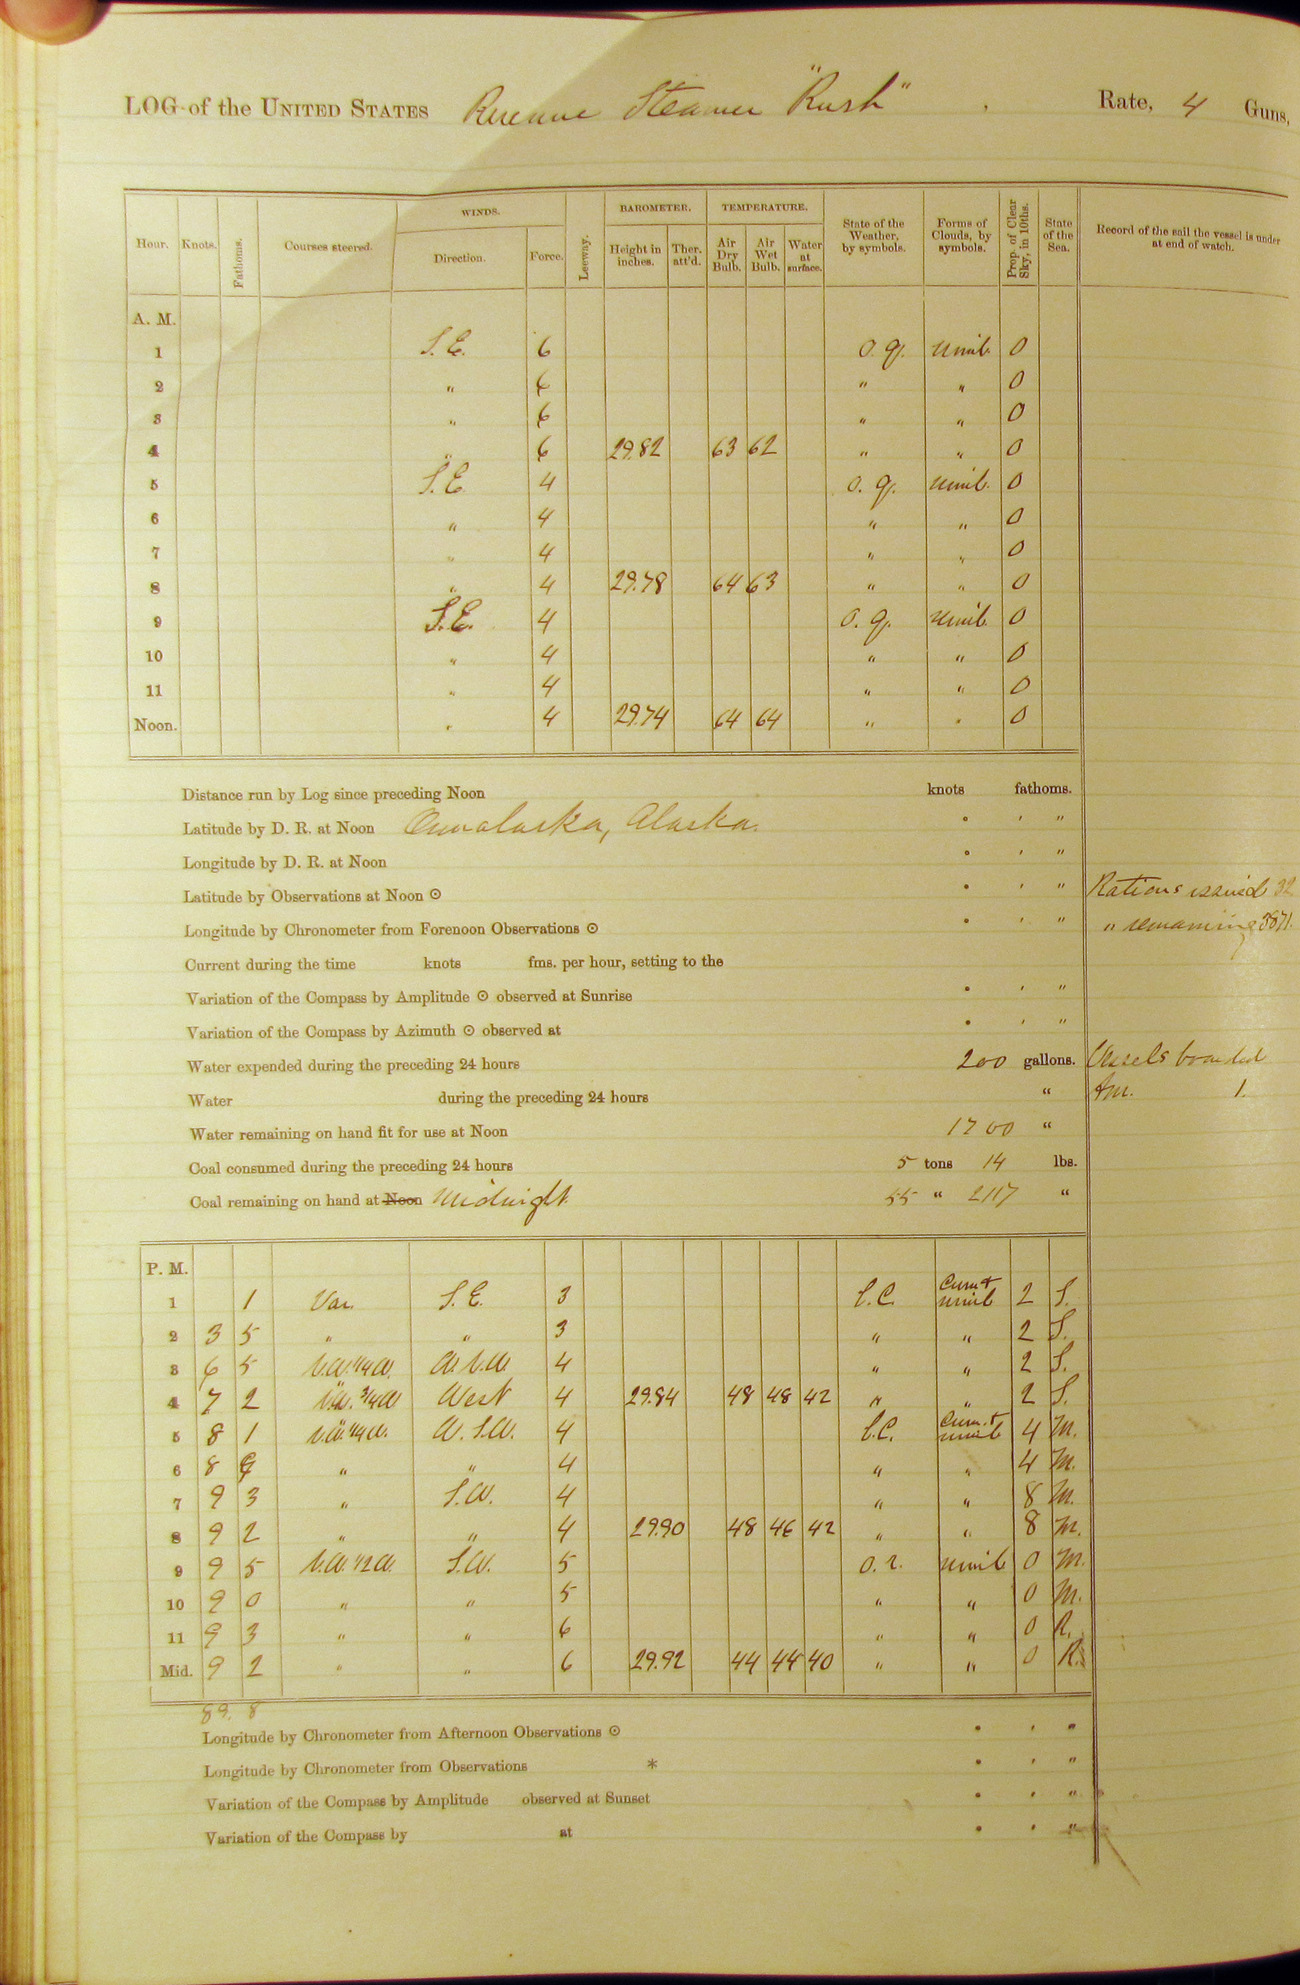 LOG of the UNITED STATES Revenue Steamer "Rush", Rate, 4 Guns,
Hour. Knots. Fathoms. Courses steered. WINDS. Direction. Force. Leeway. BAROMETER. Height in inches. Ther. att'd. TEMPERATURE. Air Dry Bulb. Air Wet Bulb. Water at surface. State of the Weather, by symbols. Forms of Clouds, by symbols. Prop. of Clear Sky, in 10ths. State of the Sea. Record of the sail the vessel is under at end of watch.
A. M.
1 S.E. 6 o.g. nimb 0
2 " 6 " " 0
3 " 6 " " 0
4 " 6 29.82 63 62 " " 0
5 S.E. 4 o.g. nimb. 0
6 " 4 " " 0
7 " 4 " " 0
8 " 4 29.78 64 63 " " 0
9 S.E. 4 o.g. nimb. 0
10 " 4 " " 0
11 " 4 " " 0
Noon. " 4 29.74 64 64 " " 0
Distance run by Log since preceding Noon knots fathoms.
Latitude by D. R. at Noon Ounalaska, Alaska. ° ' "
Longitude by D. R. at Noon ° ' "
Latitude by Observations at Noon ⊙ ° ' " Rations issued 32
Longitude by Chronometer from Forenoon Observations ⊙ ° ' " " remaining 3871.
Current during the time knots fms. per hour, setting to the
Variation of the Compass by Amplitude ⊙ observed at Sunrise ° ' "
Variation of the Compass by Azimuth ⊙ observed at ° ' "
Water expended during the preceding 24 hours 200 gallons. Vessels boarded
Water during the preceding 24 hours " Am. 1.
Water remaining on hand fit for use at Noon 1700 "
Coal consumed during the preceding 24 hours 5 tons 14 lbs.
Coal remaining on hand at Noon Midnight. 55 " 2117 "
P. M.
1 1 Var. S.E. 3 b.c. Cum + nimb 2 S.
2 3 5 " " 3 " " 2 S.
3 6 5 N.W. 1/4 W. W.N.W. 4 " " 2 S.
4 7 2 N.W. 3/4 W West 4 29.84 48 48 42 " " 2 S.
5 8 1 N.W. 1/4 W. W.S.W. 4 b.c. Cum. + nimb 4 M.
6 8 9 " " 4 " " 4 M.
7 9 3 " S.W. 4 " " 8 M.
8 9 2 " " 4 29.90 48 46 42 " " 8 M.
9 9 5 N.W. 1/2 W. S.W. 5 o.r. nimb 0 M.
10 9 0 " " 5 " " 0 M.
11 9 3 " " 6 " " 0 R.
Mid. 9 2 " " 6 29.92 44 44 40 " " 0 R.
89. 8
Longitude by Chronometer from Afternoon Observations ⊙ ° ' "
Longitude by Chronometer from Observations * ° ' "
Variation of the Compass by Amplitude observed at Sunset ° ' "
Variation of the Compass by at ° ' "